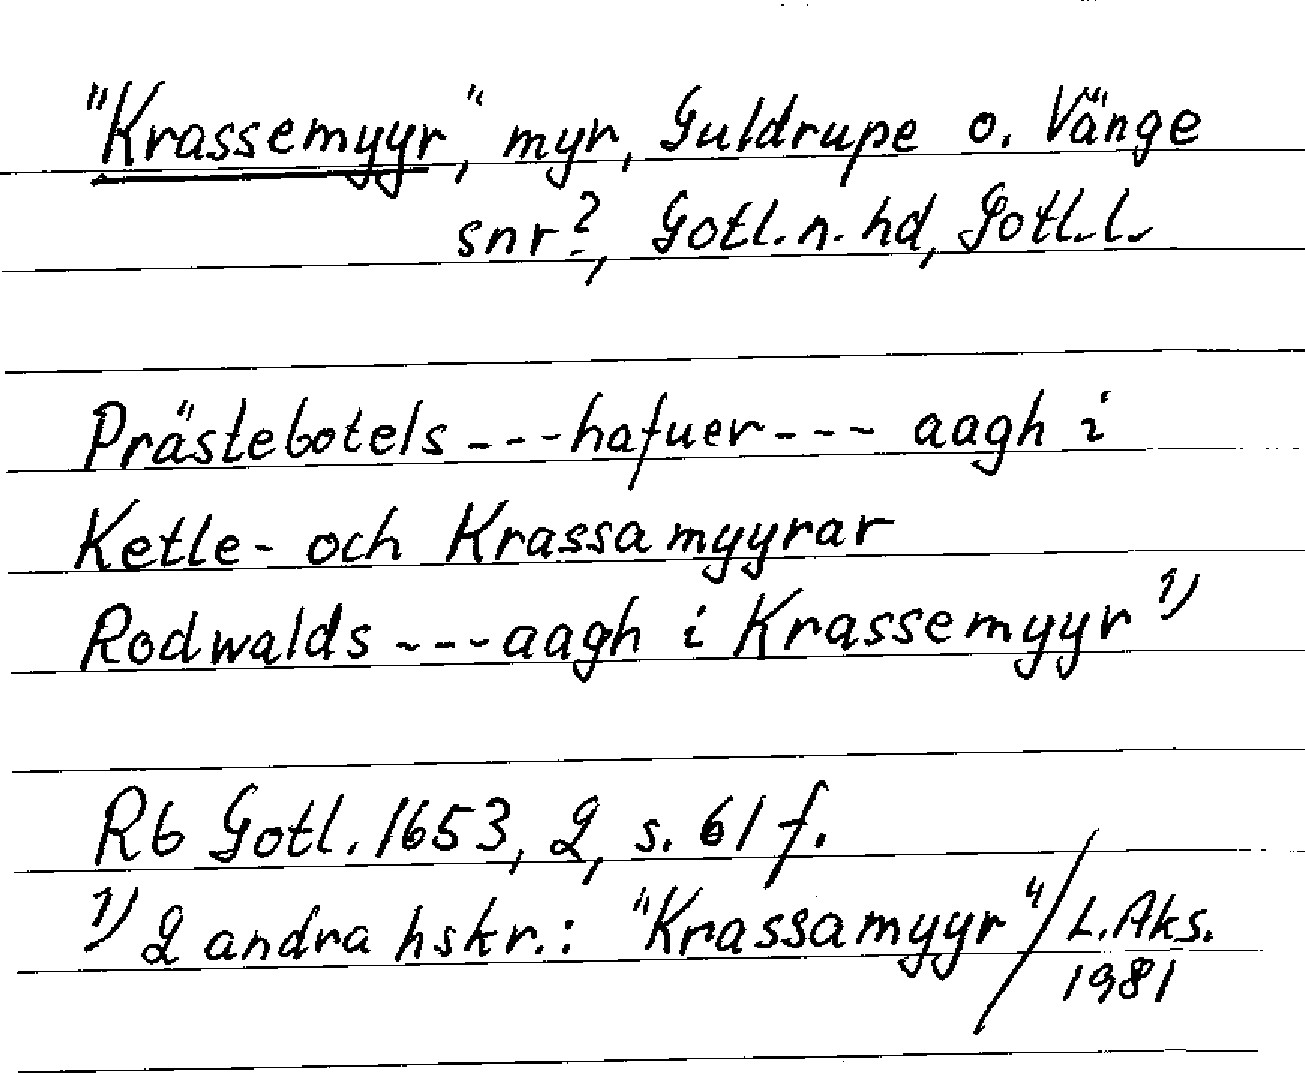 "Krassemyyr", myr, Guldrupe o. Vänge
snr?, Gotl. n. hd, Gotl. l.
Prästebotels ---hafuer--- aagh i
Ketle- och Krassamyyrar
Rodwalds ---aagh i Krassemyyr 1)
Rb Gotl. 1653, 2, s. 61 f.
1) 2 andra hskr.: "Krassamyyr" / L. Aks.
1981